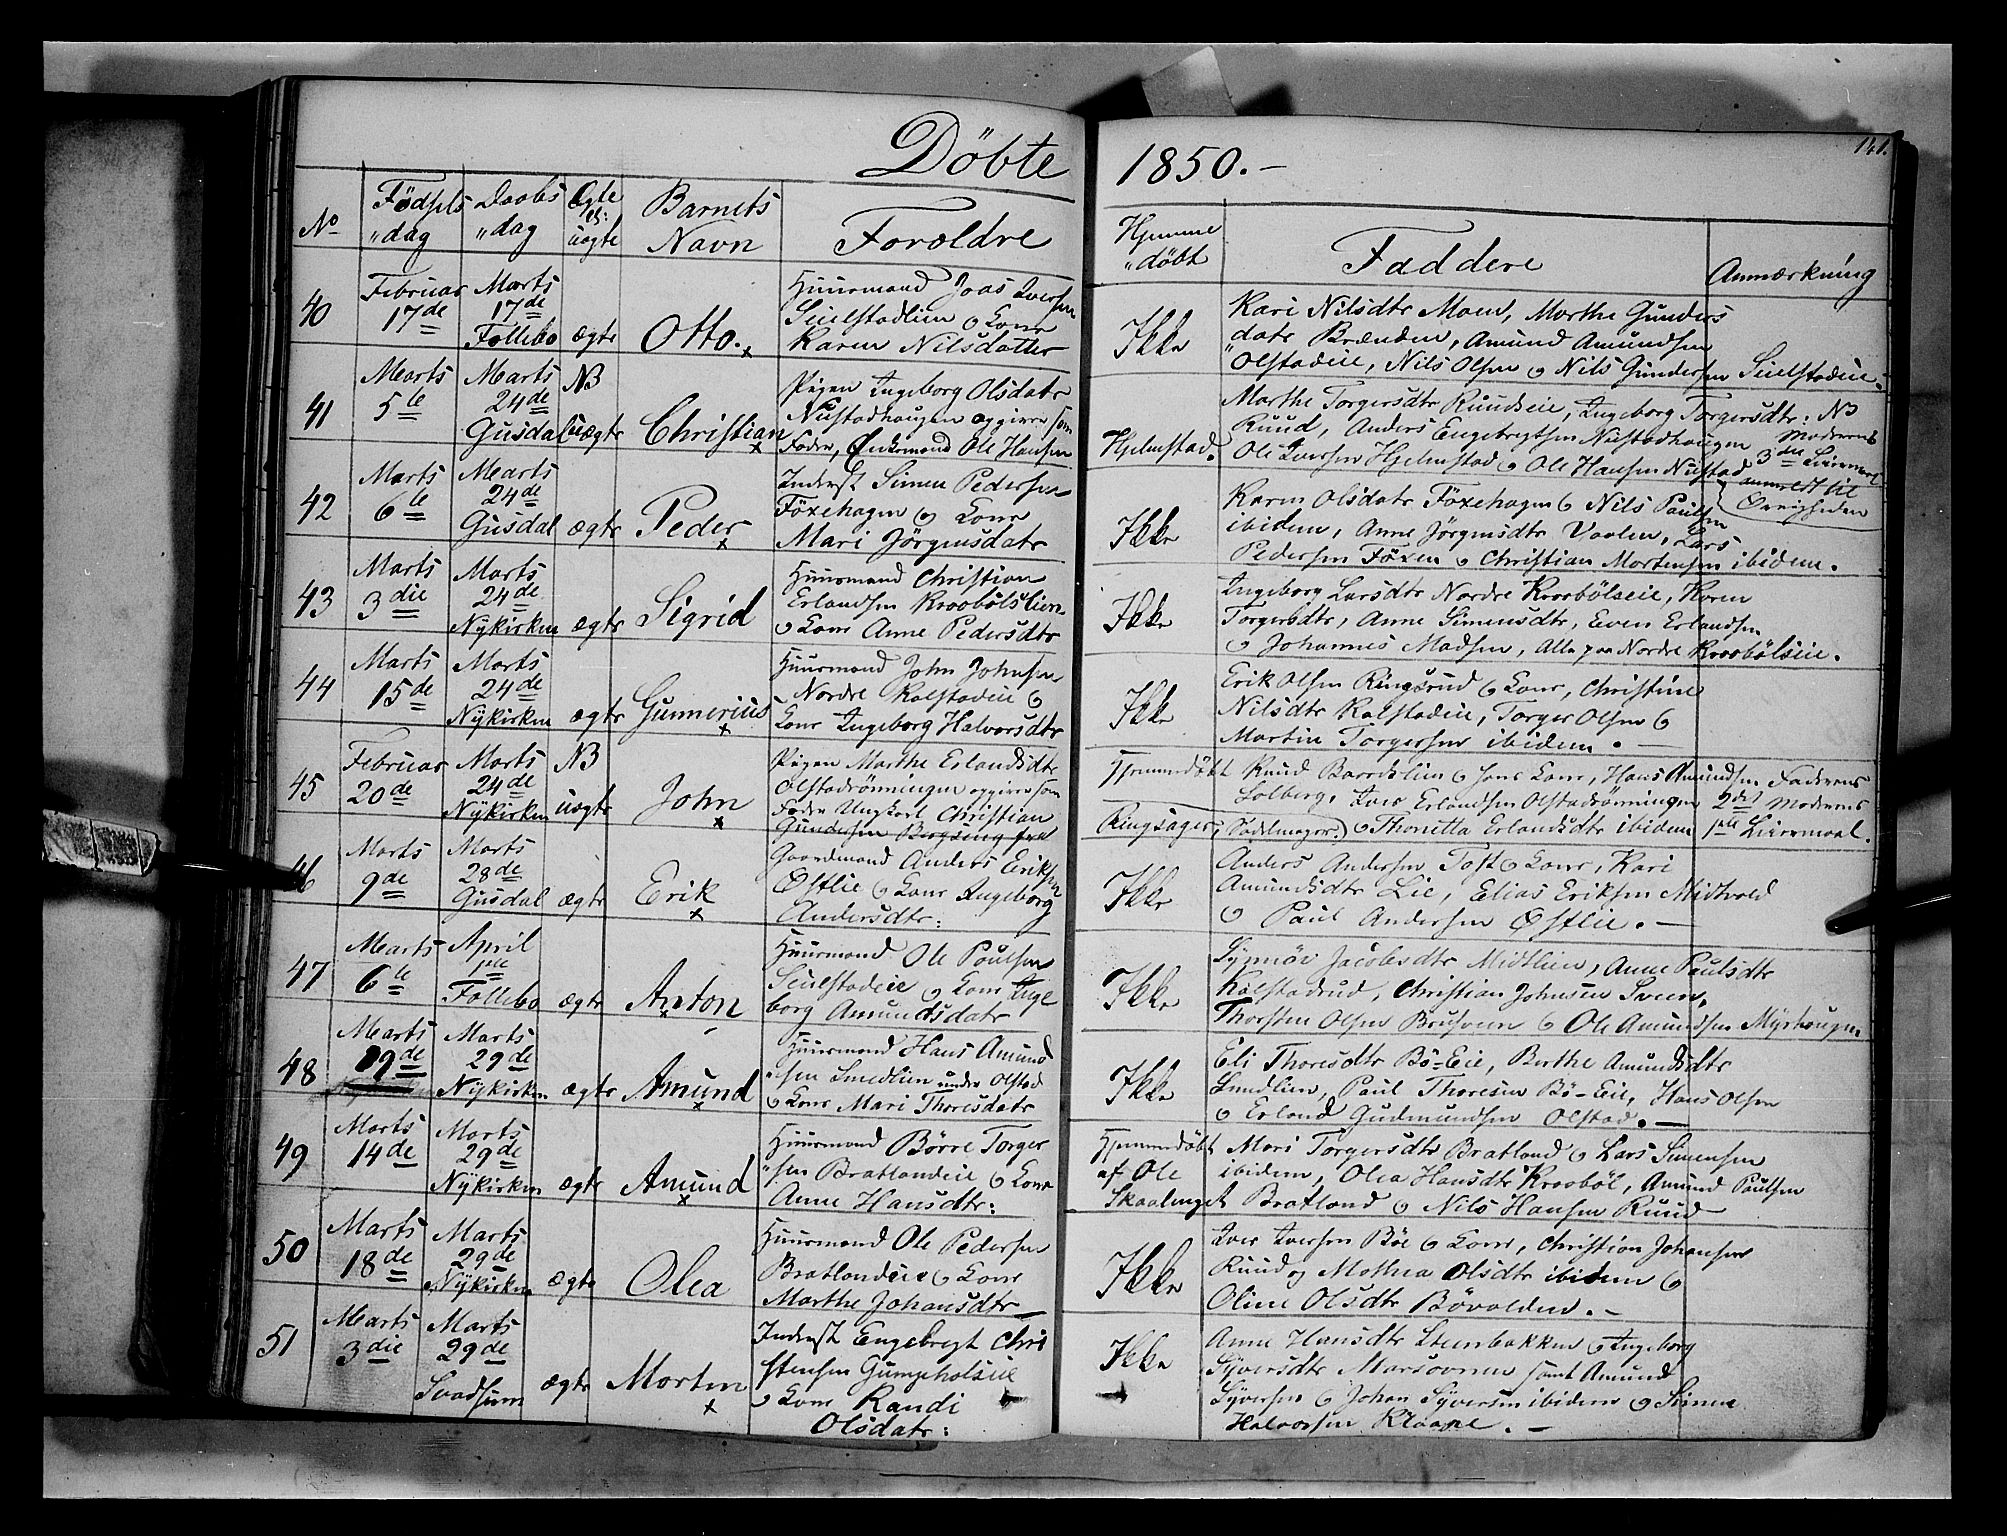 Döbte 1850.-
141.
No
Födsels „dag
Daabs „dag
Ægte el: uægte
Barnets Navn
Forældre
Hjemme „döbt
Faddere
Anmærkning
40
Februar 17de
Marts 17de Follebo
ægte
Otto.
Huusmand Joas Iversen
Seielstadlien og Kone
Karen Nilsdatter
Ikke
Kari Nilsdtr Moen, Marthe Gunders
datr Brænden, Amund Amundsen
Olstadeie, Nils Olsen og Nils Gundersen Seielstadeie.
41
Marts 5te
Marts 24de Gusdal
NB uægte
Christian
Pigen Ingeborg Olsdatr
Nustadhaugen opgiver som
Fader, Enkemand Ole Hansen
Hjelmstad.
Marthe Torgersdtr Ruudseie, Ingeborg Torgersdtr:
Ruud, Anders Engebregtsen Nustadhaugen
Ole Iversen Hjelmstad og Ole Hansen Nustad
NB
Moderens
3die Leiermaal
anmeldt til
Øvrigheden
42
Marts 6te
Marts 24de Gusdal
ægte
Peder
Inderst Simen Pedersen
Föxehagen og Kone
Mari Jörgensdatr
Ikke
Karen Olsdatr Föxehagen og Nils Paulsen
ibidem, Anne Jörgensdtr Vaalen, Lars
Pedersen Föxen og Christian Mortensen ibidem.
43
Marts 3die
Marts 24de Nykirken
ægte
Sigrid
Huusmand Christian
Erlandsen Kroobölslien
og Kone Anne Pedersdtr
Ikke
Ingeborg Larsdtr Nordre Kroobölseie, Karen
Torgersdtr, Anne Simensdtr, Even Erlandsen
og Johannes Madsen, Alle paa Nordre Kroobölseie.
44
Marts 15de
Marts 24de Nykirken
ægte
Gunnerius
Huusmand John Johnsen
Nordre Kalstadeie og
Kone Ingeborg Halvorsdtr
Ikke
Erik Olsen Ringsrud og Kone, Christine
Nilsdtr Kalstadeie, Torger Olsen og
Martin Torgersen ibidem.
45
Februar 20de
Marts 24de Nykirken
NB uægte
John
Pigen Marthe Erlandsdtr
Olstadrönningen opgiver som
Fader Ungkarl Christian
Gundersen Bergseng fra
Hjemmedöbt
Ringsager,
Knud Baardslien og hans Kone, Hans Amundsen
Solberg, Iver Erlandsen Olstadrönningen
(Sadelmager.) og Thonetta Erlandsdtr ibidem
Faderens
2det Moderens
1ste Leiermaal.
46
Marts 9de
Marts 28de Gusdal
ægte
Erik
Gaardmand Anders Eriksen
Østlie og Kone Ingeborg
Andersdtr:
Ikke
Anders Andersen Toft og Kone, Kari
Amundsdtr Lie, Elias Eriksen Midtvold
og Paul Andersen Østlie.
47
Marts 6te
April 1ste Follebo
ægte
Anton
Huusmand Ole Poulsen
Seielstadeie og Kone Inge
borg Amundsdatr
Ikke
Synnöv Jacobsdtr Midtlien, Anne Paulsdtr
Kalstadrud, Christian Johnsen Sveen,
Thorsten Olsen Brusveen og Ole Amundsen Myrhaugen
48
Marts 19de
Marts 29de Nykirken
ægte
Amund
Huusmand Hans Amund
„sen Smedlien under Olstad
og Kone Mari Thoresdatr
Ikke
Eli Thoresdtr Bö-Eie, Berthe Amundsdtr
Smedlien, Paul Thoresen Bö-Eie, Hans Olsen
og Erland Gudmundsen Olstad.
49
Marts 14de
Marts 29de Nykirken
ægte
Amund
Huusmand Börre Torger
„sen Bratlandeie og Kone
Anne Hansdtr:
Hjemmedöbt
af Ole
Skaalenget
Mari Torgersdtr Bratland og Lars Simensen
ibidem, Olea Hansdtr Krooböl, Amund Paulsen
Bratland og Nils Hansen Ruud
50
Marts 18de
Marts 29de Nykirken
ægte
Olea
Huusmand Ole Pedersen
Bratlandeie og Kone
Marthe Johansdtr
Ikke
Iver Iversen Böe og Kone, Christian Johansen
Ruud og Mathea Olsdtr ibidem og
Oline Olsdtr Bövolden.
51
Marts 3die
Marts 29de Svadsum
ægte
Morten
Inderst Engebregt Chri
stensen Gumpeholseie
og Kone Randi
Olsdatr:
Ikke
Anne Hansdtr Steenbakken og Ingeborg
Syversdtr Morsovnen samt Amund
Syversen og Johan Syversen ibidem og Simen
Halvorsen Klaape.